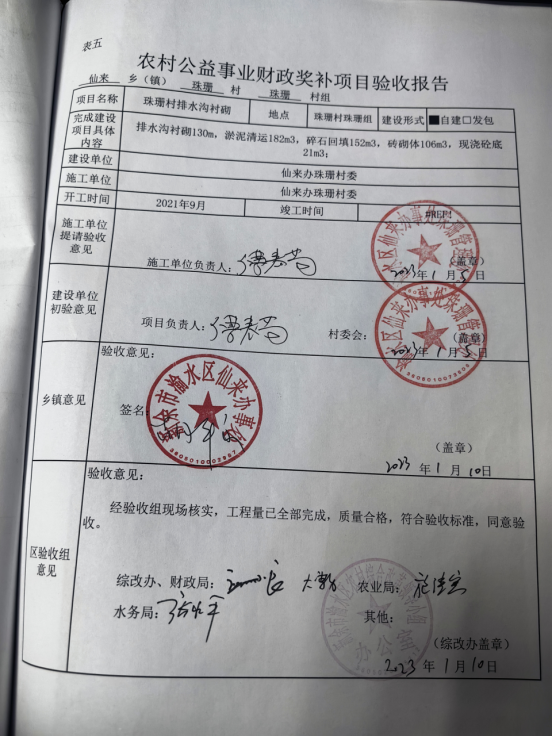 表五
农村公益事业财政奖补项目验收报告
仙来 乡（镇） 珠珊 村 珠珊 村组
项目名称 珠珊村排水沟衬砌 地点 珠珊村珠珊组 建设形式 ■自建□发包
完成建设项目具体内容 排水沟衬砌130m，淤泥清运182m3，碎石回填152m3，砖砌体106m3，现浇砼底21m3；
建设单位 仙来办珠珊村委
施工单位 仙来办珠珊村委
开工时间 2021年9月 竣工时间 #REF!
施工单位提请验收意见
施工单位负责人： （盖章）
2023年1月5日
建设单位初验意见
项目负责人： 村委会： （盖章）
2023年1月5日
乡镇意见
验收意见：
签名
渝水区仙来办事处
（盖章）
2023年1月10日
区验收组意见
验收意见：
经验收组现场核实，工程量已全部完成，质量合格，符合验收标准，同意验
收。
综改办、财政局： 农业局：
水务局： 其他：
办公室
（综改办盖章）
2023年1月10日